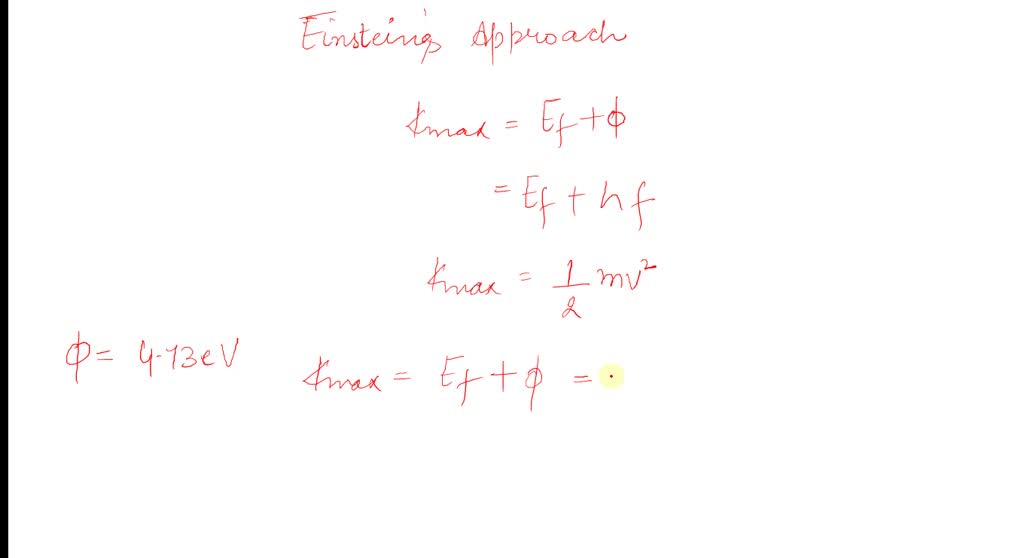 Einstein's Approach
Kmax = Ef + ϕ
= Ef + hf
Kmax = 1/2 mv²
ϕ = 4.73eV
Kmax = Ef + ϕ = .